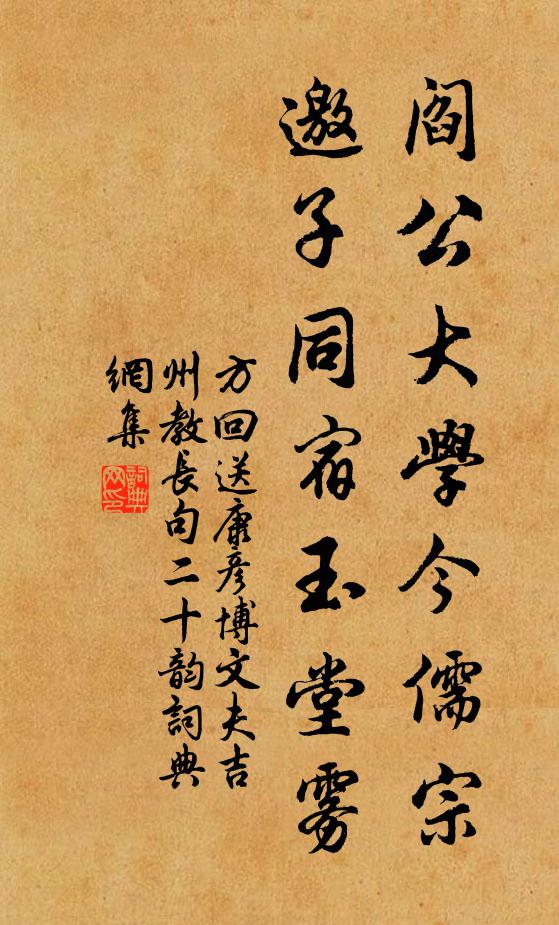 閻公大學今儒宗
邀子同宿玉堂霧
方回送康彥博文夫吉
州教長句二十韵詞典
網集
詞典
网印